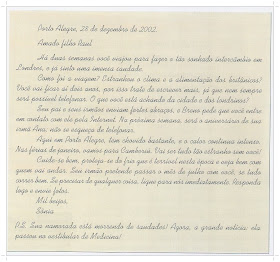 Porto Alegre, 28 de dezembro de 2002.
Amado filho Raul
Há duas semanas você viajou para fazer o tão sonhado intercâmbio em
Londres, e já sinto uma imensa saudade.
Como foi a viagem? Estranhou o clima e a alimentação dos britânicos?
Você vai ficar aí dois anos, por isso trate de escrever mais, já que nem sempre
será possível telefonar. O que você está achando da cidade e dos londrinos?
Seu pai e seus irmãos enviam fortes abraços, e Breno pede que você entre
em contato com ele pela Internet. Na próxima semana, será o aniversário de sua
irmã Ana; não se esqueça de telefonar.
Aqui em Porto Alegre, tem chovido bastante, e o calor continua intenso.
Nas férias de janeiro, vamos para Camboriú. Vai ser tudo tão estranho sem você!
Cuide-se bem, proteja-se do frio que é terrível nesta época e veja bem com
quem vai andar. Seu irmão pretende passar o mês de julho com você, se tudo
correr bem. Se precisar de qualquer coisa, ligue para nós imediatamente. Responda
logo e envie fotos.
Mil beijos,
Sônia
P.S. Sua namorada está morrendo de saudades! Agora, a grande notícia: ela
passou no vestibular de Medicina!